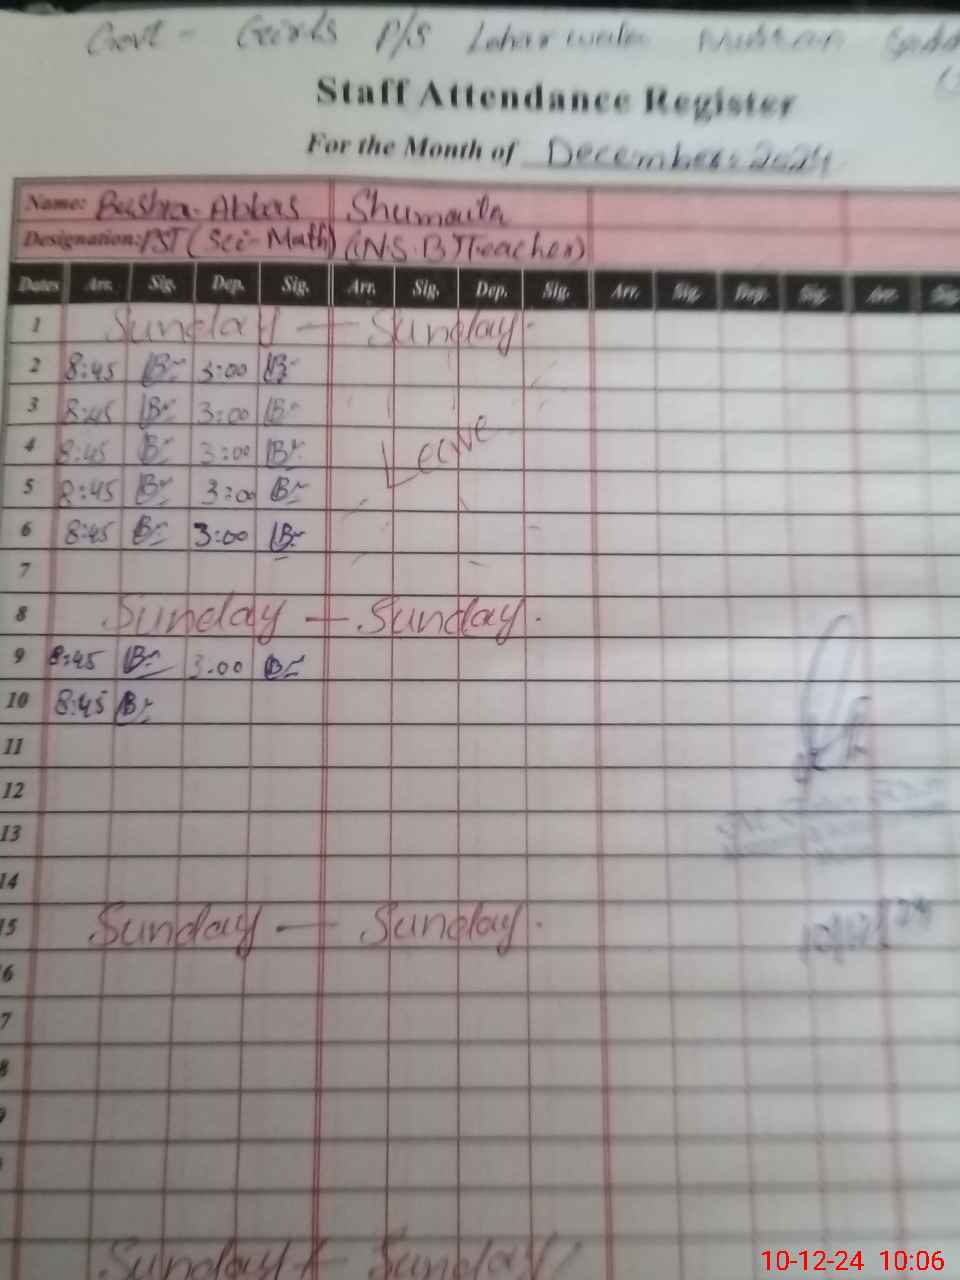 Govt - Girls P/S Multan
Staff Attendance Register
For the Month of December 2024
Name: Bushra Abbas Shumaila
Designation: PST (Sci-Math) (N.S.B) Teacher)
Dates Arr. Sig. Dep. Sig. Arr. Sig. Dep. Sig. Arr. Sig. Dep. Sig. Arr. Sig.
1 Sunday — Sunday.
2 8:45 3:00
3 8:45 3:00
4 8:45 3:00 Leave
5 8:45 3:00
6 8:45 3:00
7
8 Sunday — Sunday.
9 8:45 3.00
10 8:45
11
12
13
14
15 Sunday — Sunday.
6
7
8
9
Sunday — Sunday
10/12/24
10-12-24 10:06